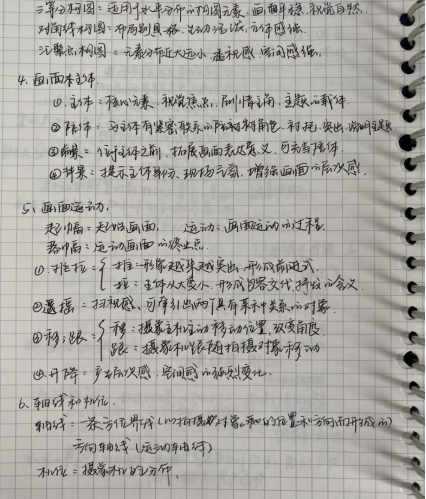 三等分构图：适用于水平分布的构图元素，画面平稳，视觉自然
对角线构图：布局别具一格，生动活泼，立体感强
汇聚点构图：元素分布近大远小，透视感、空间感强
4、画面体主体
①主体：核心元素、视觉焦点、剧情主角、主题的载体
②陪体：与主体有紧密联系的陪衬和角色，衬托、突出、说明主题
③前景：位于主体之前，拓展画面表达意义，可充当陪体
④背景：提示主体身份、现场气氛，增强画面的层次感
5、画面运动
起幅：起始画面， 运动：画面运动的过程
落幅：运动画面的终止点
①推拉：推：形象越来越突出，形成前进式
拉：主体从大变小，形成内容交代、抒发的含义
②遥摇：扫视感、可牵引出两个具有某种关系的对象
③移；跟：移：摄象机主动移动位置，改变角度
跟：摄象机跟随拍摄对象移动
④升降：多层次感，空间感的强烈变化
6、轴线和机位
轴线：一条方位界线（以拍摄对象和的位置和方向而形成的）
方向轴线（运动轴线）
机位：摄象机的分布、